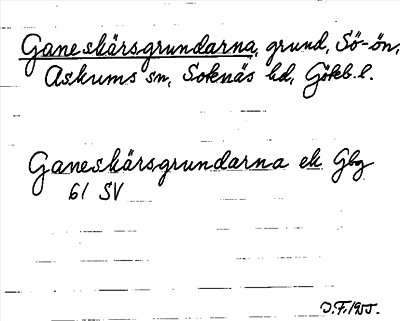 Ganeskärsgrundarna, grund, Sö-ön,
Askums sn, Sotenäs hd, Götkb. l.
Ganeskärsgrundarna ek Gbg
61 SV
J.F. 1955.